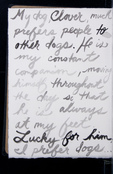 My dog Clover, much
prefers people to
other dogs. He is
my constant
companion, moving
himself throughout
the day so that
he is always
at my feet.
Lucky for him
I prefer dogs...